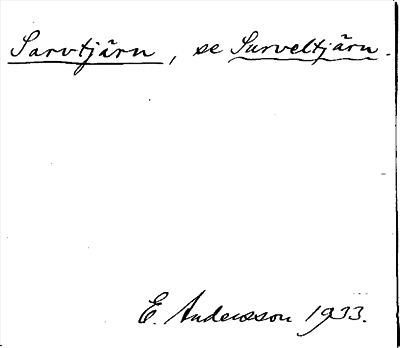 Sarvtjärn, se Surveltjärn.
E. Andersson 1933.